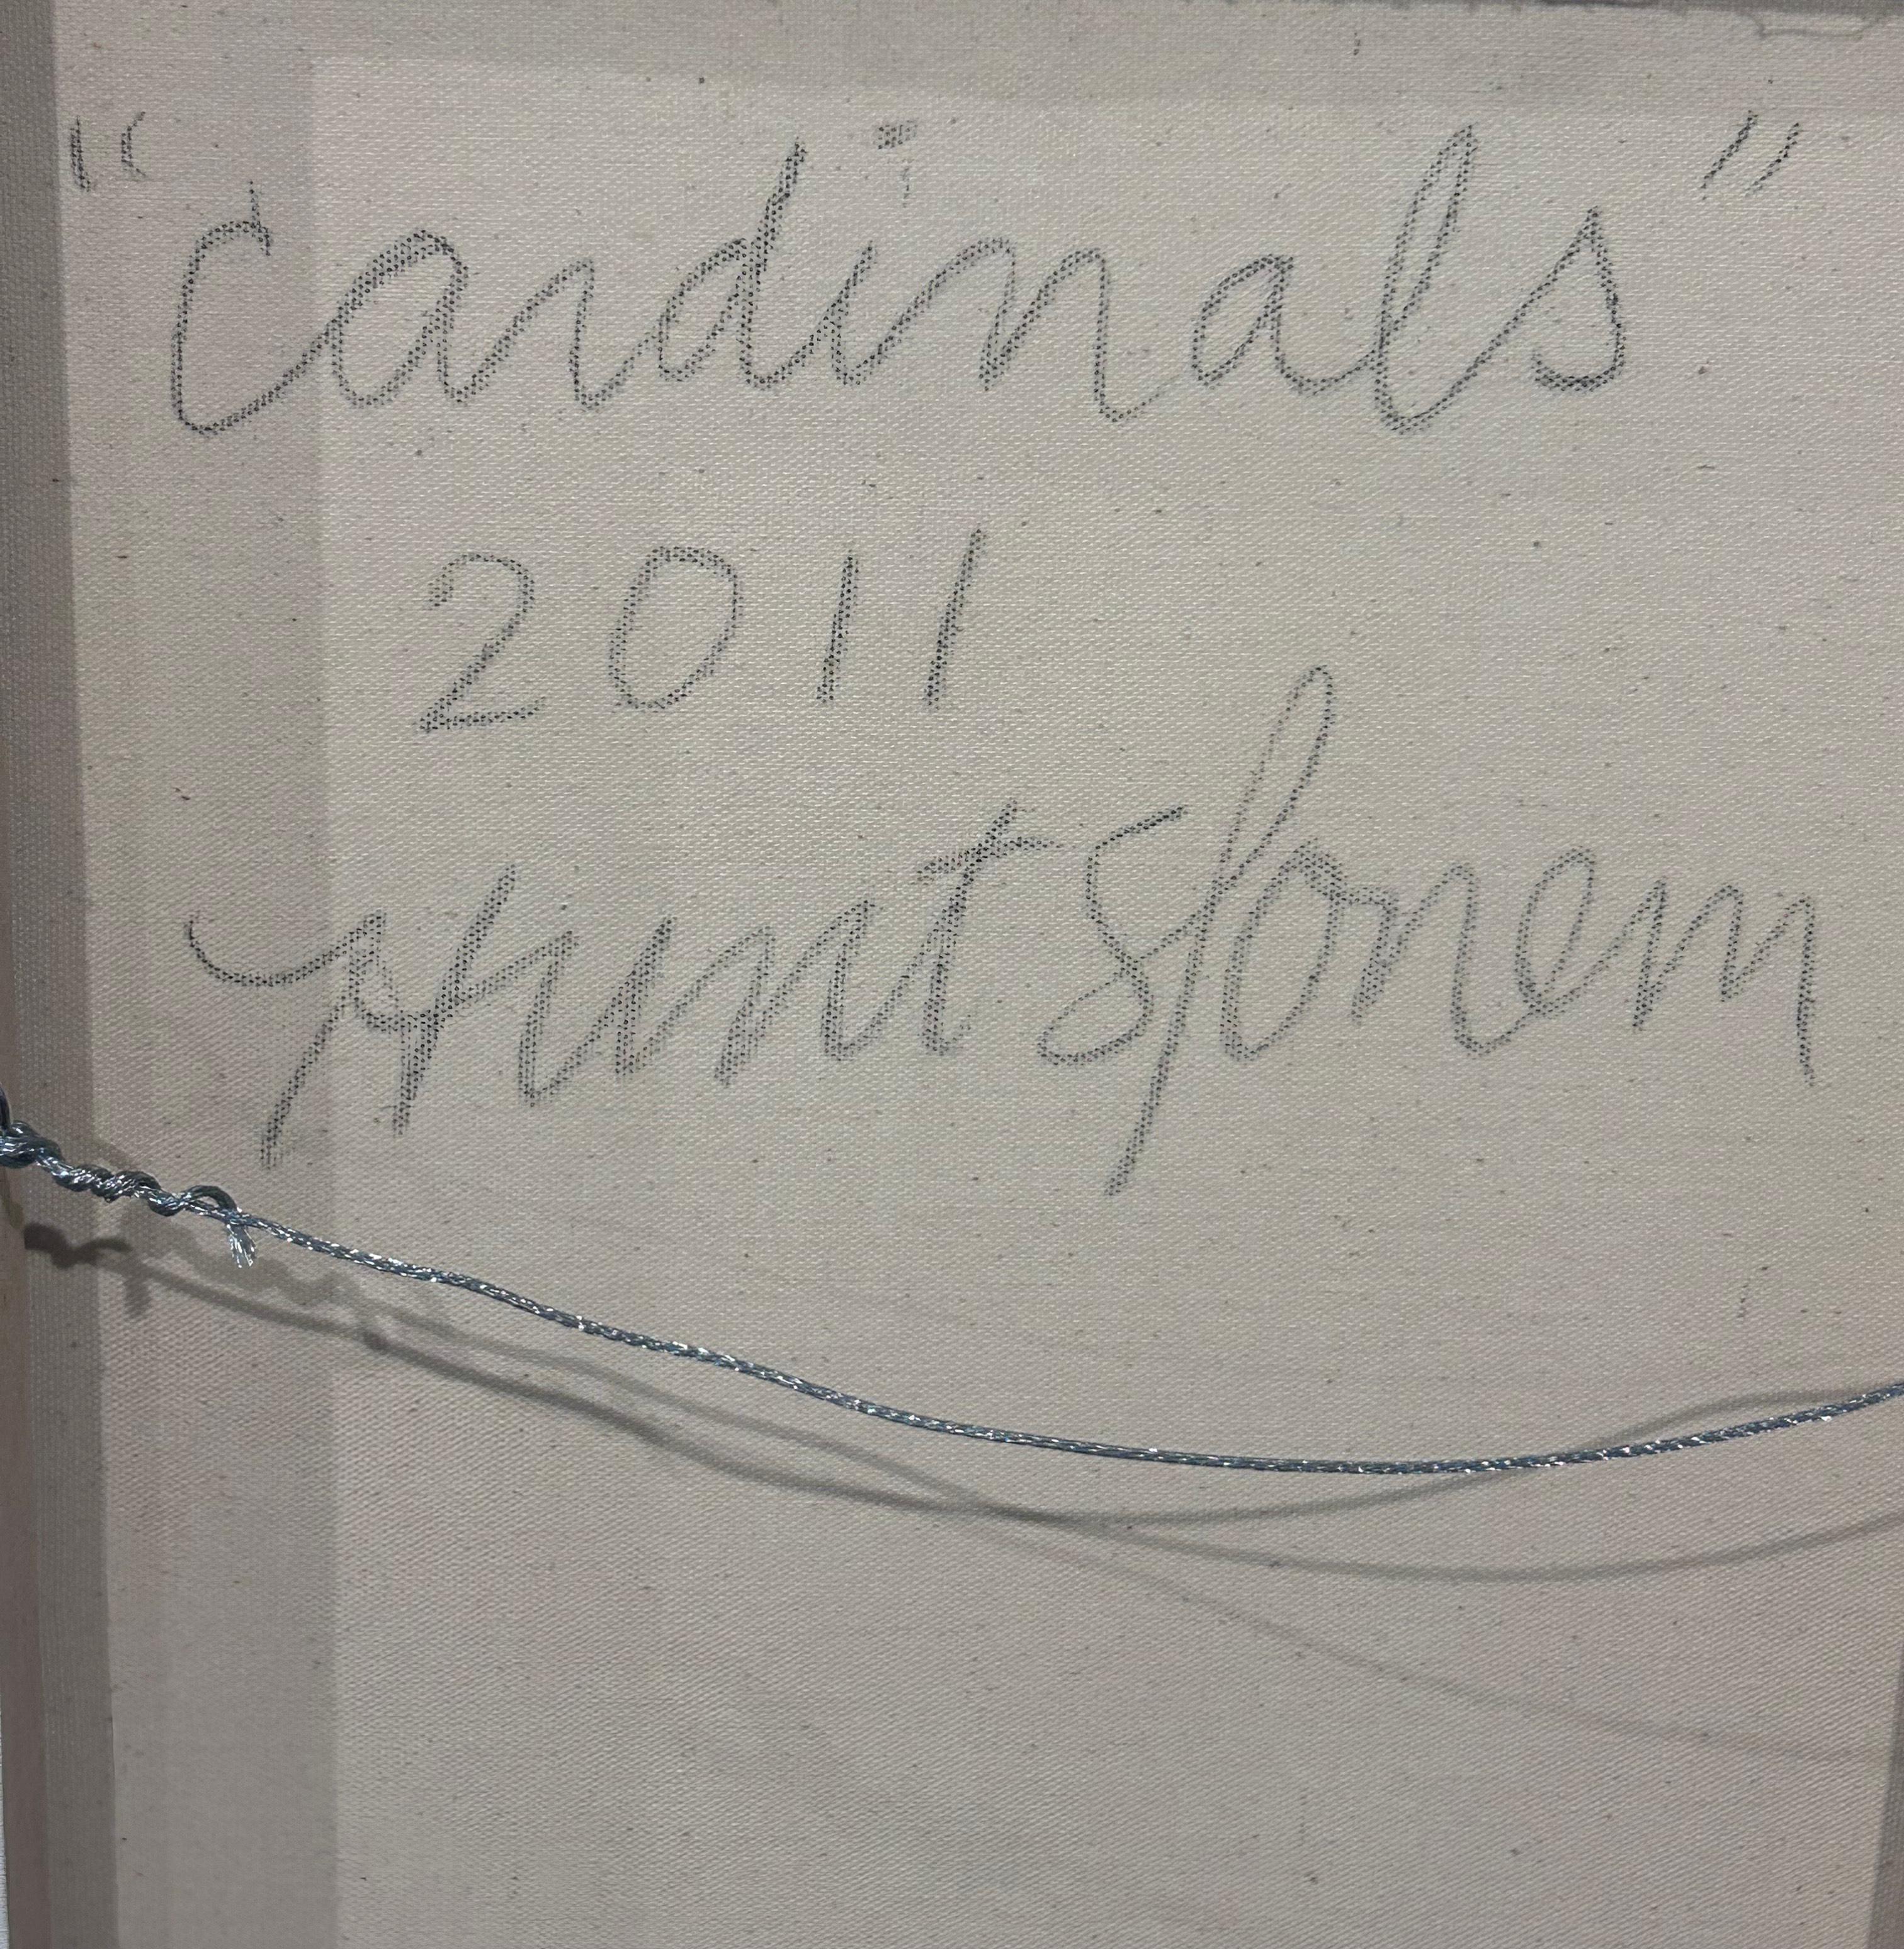 "Cardinals"
2011
Hunt Slonem